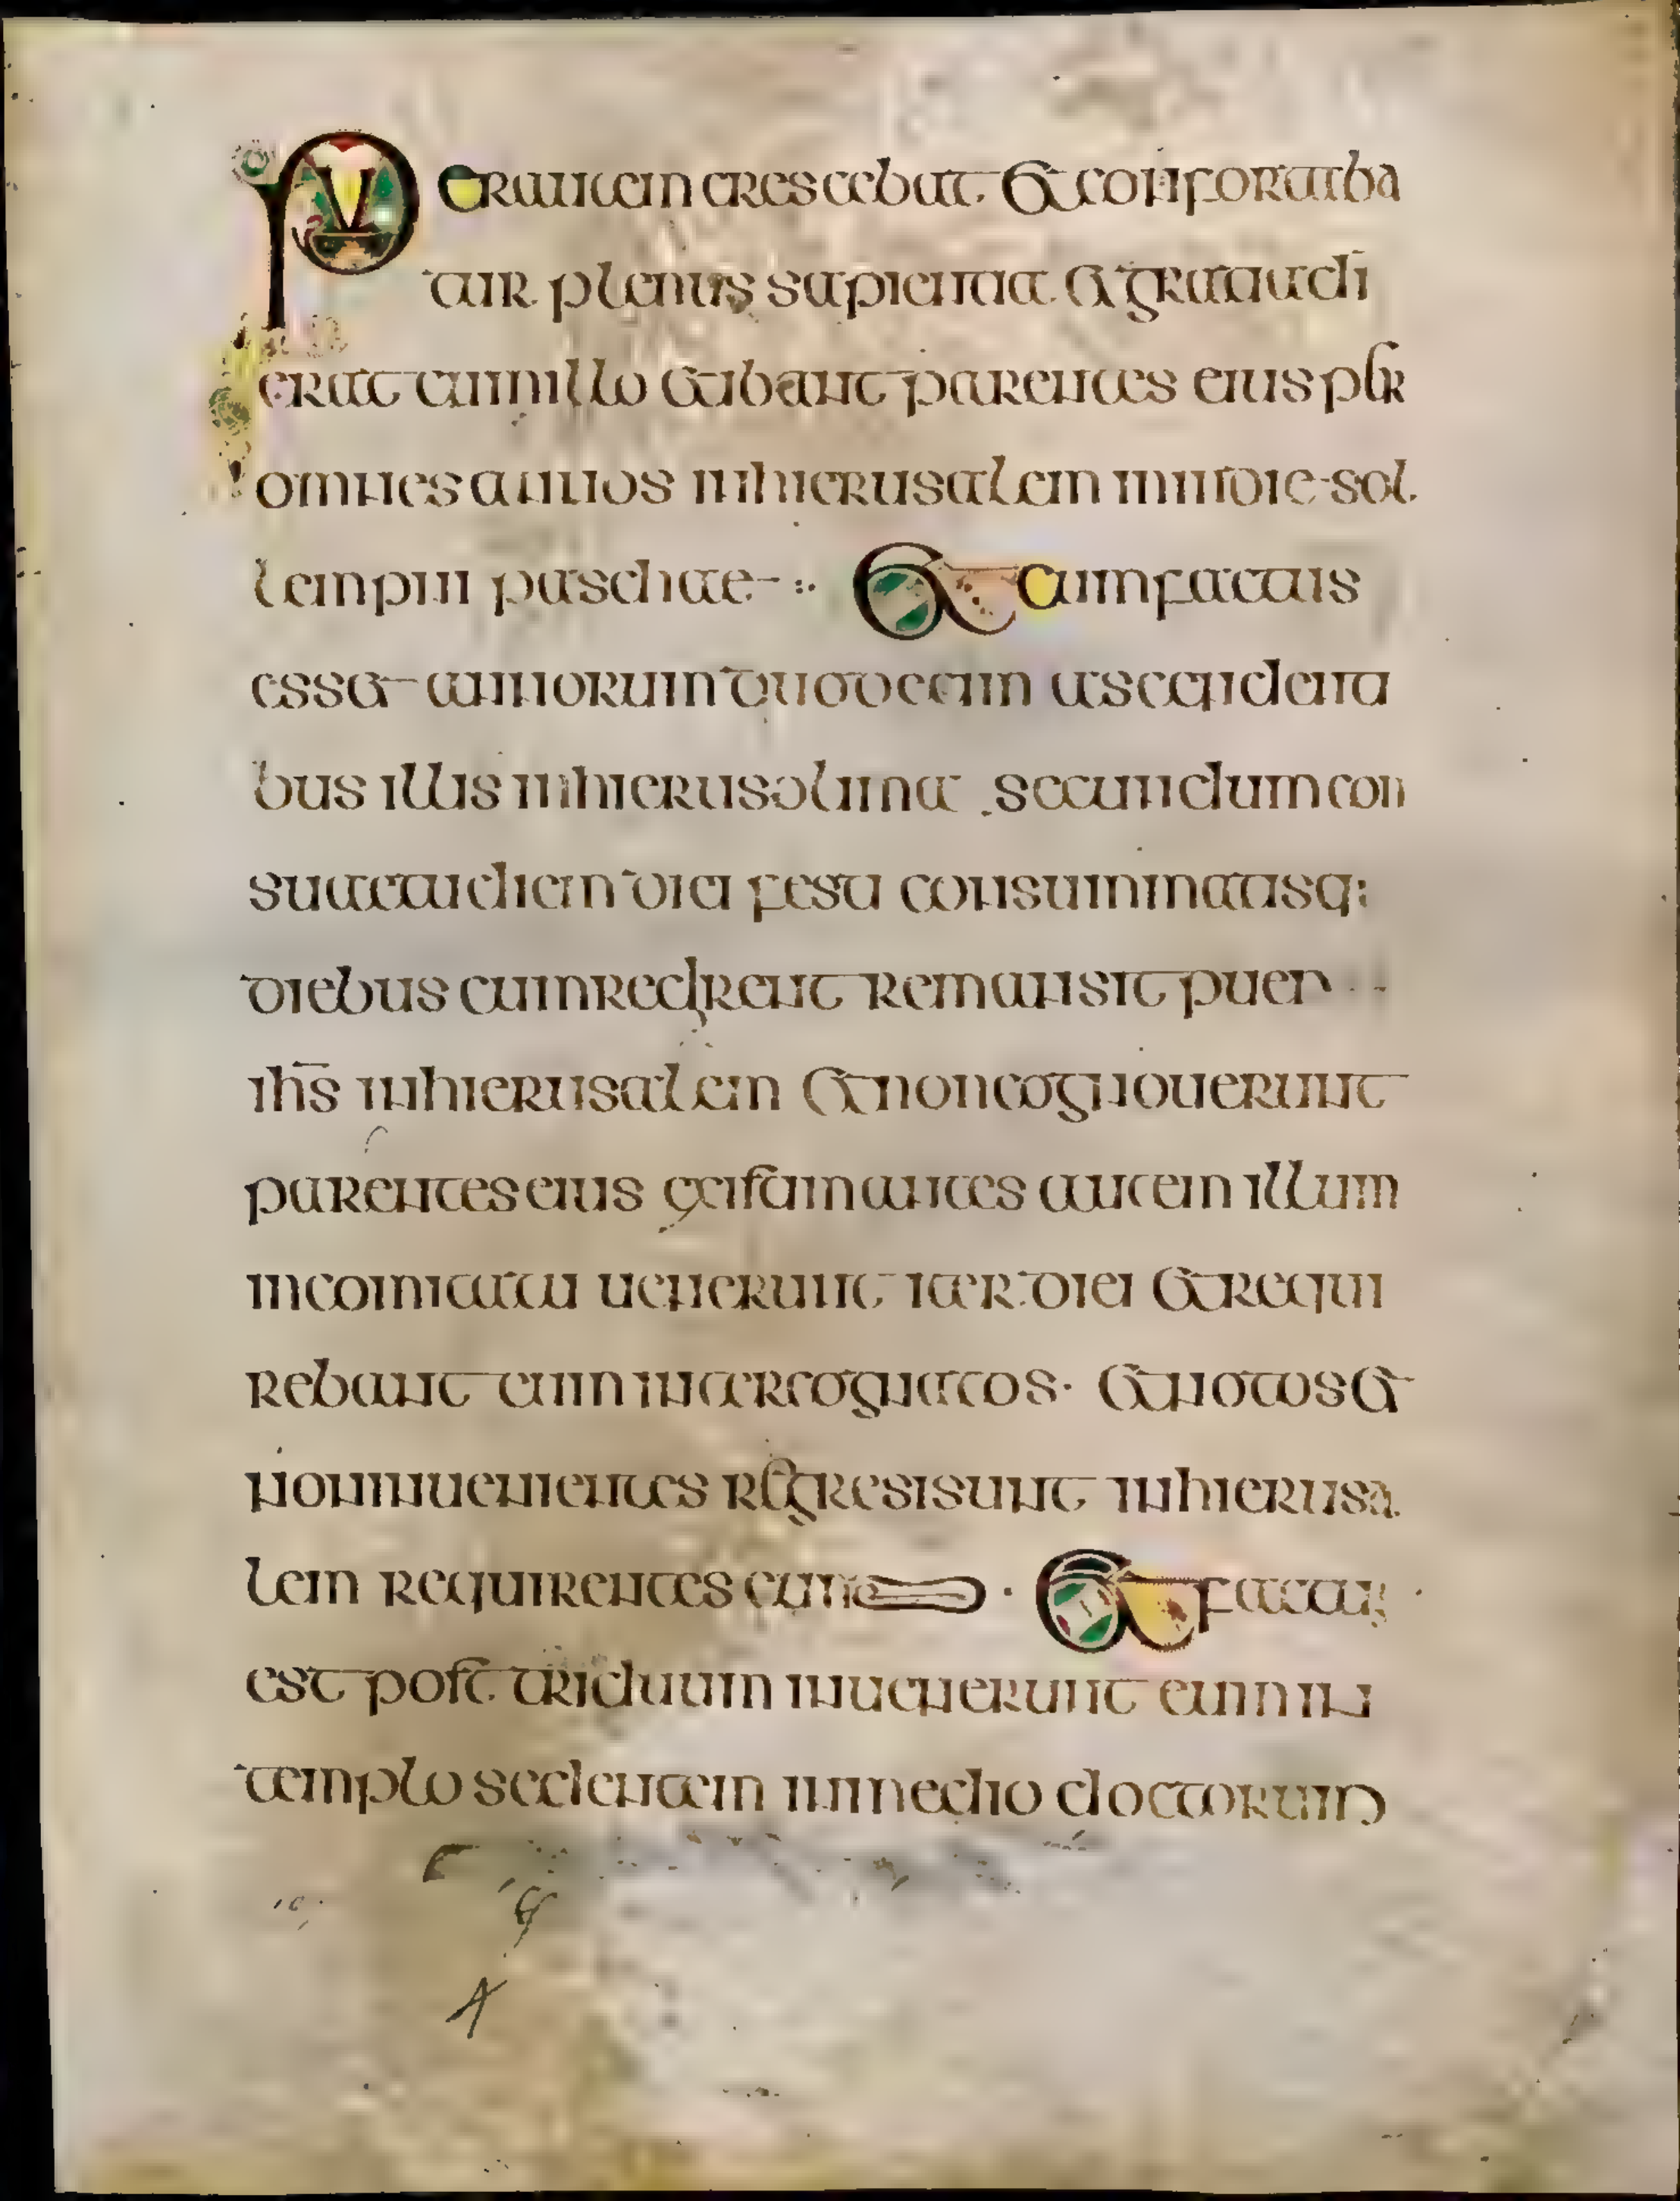 Puer autem crescebat et confortaba
tur plenus sapientia et gratia di
erat cum illo et ibant parentes eius per
omnes annos inhierusalem in die sol
lempni paschae Et cum factus
esset annorum duodecim ascendenti
bus illis inhierusolima secundum con
suaetudinem diei festi consummatisq:
diebus cum redirent remansit puer
ihs inhierusalem et non cognouerunt
parentes eius existimantes autem illum
incomitatu uenerunt iter diei et requi
rebant eum inter cognatos et notos et
non inuenientes regresi sunt inhierusa
lem requirentes eum Et factum
est post triduum inuenerunt eum in
templo sedentem in medio doctorum